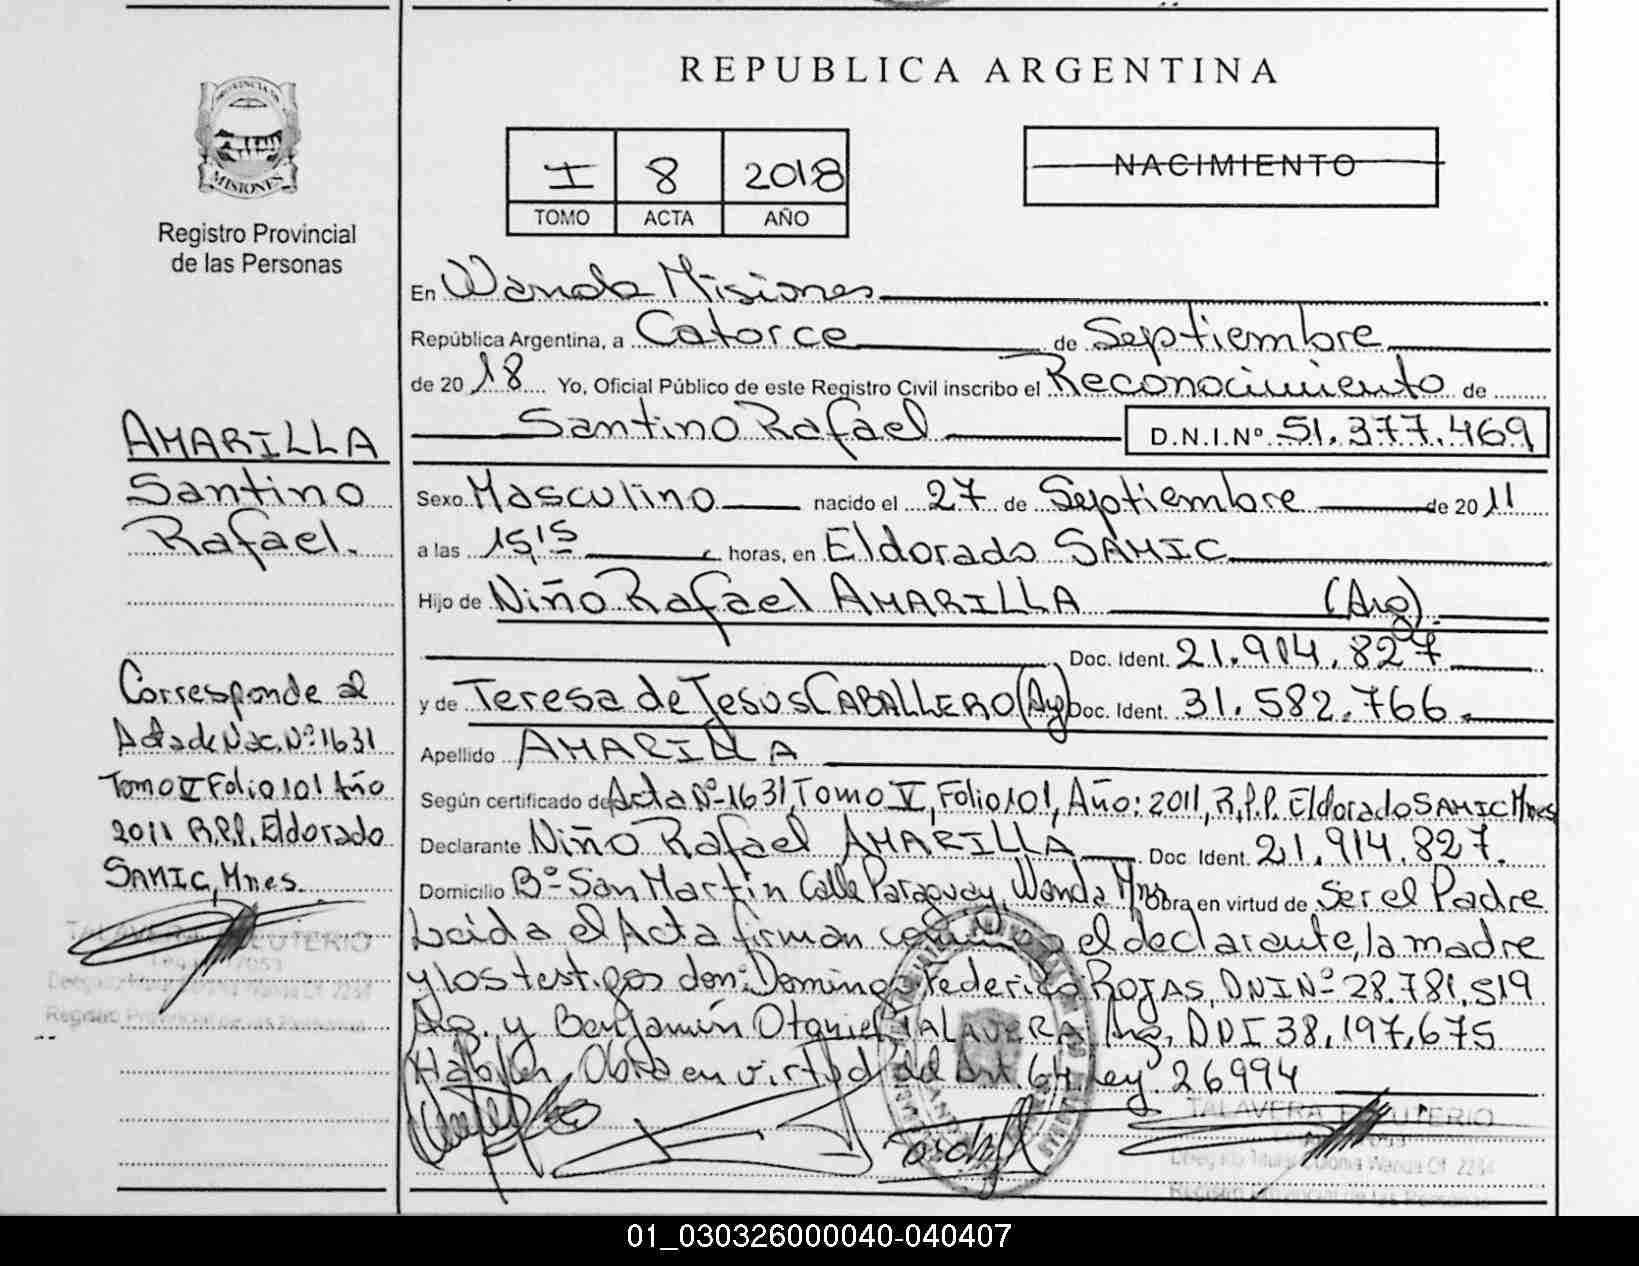 REPUBLICA ARGENTINA
PROVINCIA DE
MISIONES
Registro Provincial
de las Personas
I 8 2018
TOMO ACTA AÑO
NACIMIENTO
En Wanda Misiones
República Argentina, a Catorce de Septiembre
de 2018 Yo, Oficial Público de este Registro Civil inscribo el Reconocimiento de
Santino Rafael D.N.I.Nº 51.377.469
Sexo Masculino nacido el 27 de Septiembre de 2011
a las 15,15 horas, en Eldorado SAMIC
Hijo de Niño Rafael AMARILLA (Arg)
Doc. Ident. 21.914.827
y de Teresa de Jesus CABALLERO (Ay) Doc. Ident. 31.582.766.
Apellido AMARILLA
Según certificado de Acta Nº 1631, Tomo V, Folio 101, Año: 2011, R.P.P. Eldorado SAMIC Mnes
Declarante Niño Rafael AMARILLA Doc. Ident. 21.914.827.
Domicilio Bº San Martin Calle Paraguay, Wanda Mnes Obra en virtud de Ser el Padre
Leida el Acta firman el declarante, la madre
y los testigos don: Domingo Federico ROJAS, DNI Nº 28.781.519
Arg. y Benjamín Otoniel TALAVERA Arg, DNI 38,197,675
Hábiles, Obra en virtud del Art. 64 Ley 26994
AMARILLA
Santino
Rafael.
Corresponde al
Acta de Nac. Nº 1631
Tomo V Folio 101 Año
2011 R.P.P. Eldorado
SAMIC, Mnes.
TALAVERA ELEUTERIO
Registro Provincial de las Personas
TALAVERA ELEUTERIO
Delegado Titular Colonia Wanda Of. 2234
Registro Provincial de las Personas
01_030326000040-040407